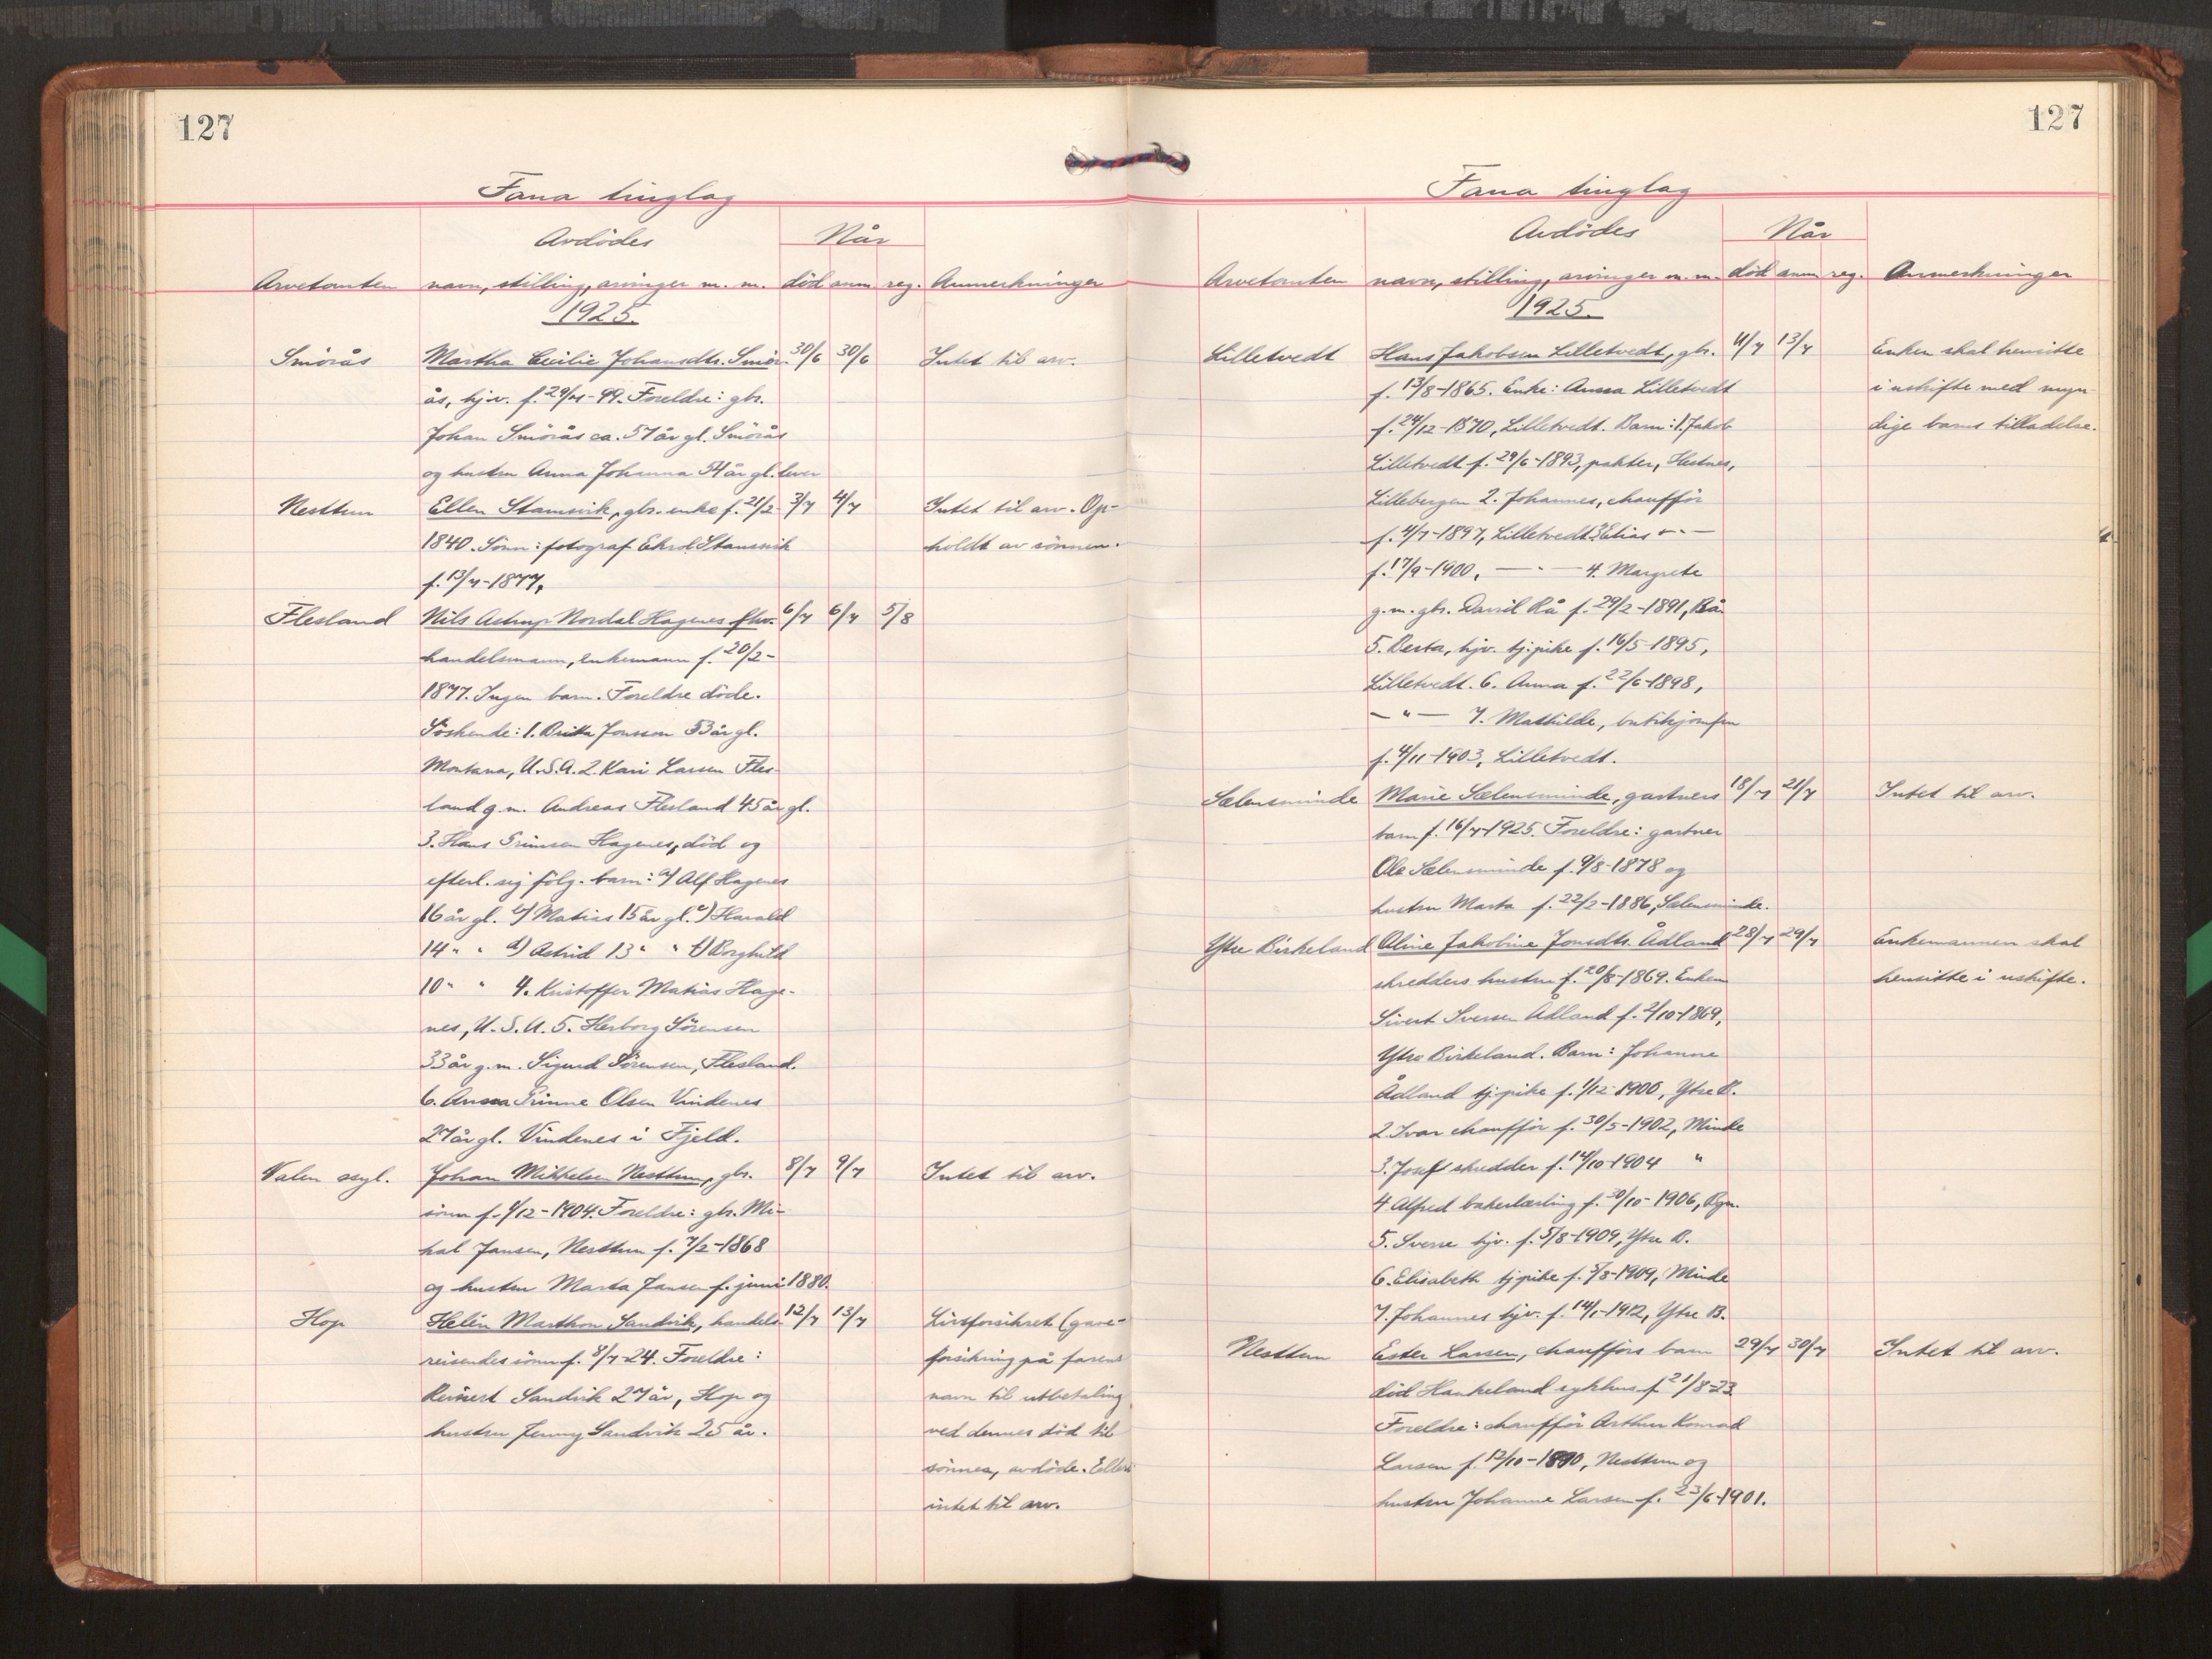 127
Fana tinglag
Avdödes
Når
Arvetomten navn, stilling, arvinger m. m. död anm. reg. Anmerkninger
1925.
Smörås Martha Cecilie Johansdtr. Smör- 30/6 30/6 Intet til arv.
ås, hjv. f. 29/11-99. Foreldre: gbr.
Johan Smörås ca. 57 år gl. Smörås
og hustru Anna Johanna 54 år gl. lever
Nesttun Ellen Stamsvik, gbr. enke f. 21/2- 3/7 4/7 Intet til arv. Op-
1840. Sönn: fotograf Stamsvik holdt av sönnen.
f. 13/7-1877.
Flesland Nils Astrup Nordal Hagenes 6/7 6/7 5/8
handelsmann, enkemann f. 20/2-
1877. Ingen barn. Foreldre döde.
Söskende: 1. Britta Jonsson 53 år gl.
Montana, U.S.A. 2. Kari Larsen Fles-
land g.m. Andreas Flesland 45 år gl.
3. Hans Hagenes, död og
efterl. sig fölg. barn: a) Alf Hagenes
16 år gl. b) Matias 15 år gl. c) Harald
14 " " d) Astrid 13 " " Borghild
10 " " 4. Kristoffer Matias Hage-
nes, U.S.A. 5. Herborg Sörensen
33 år g.m. Sigurd Sörensen, Flesland.
6. Anna Olsen Vindenes
27 år gl. Vindenes i Fjeld.
Valen Johan Mikkelsen Nesttun, gbr. 8/7 9/7 Intet til arv.
sönn f. 9/12-1904. Foreldre: gbr. Mi-
kal Jansen, Nesttun f. 7/2-1868
og hustru Marta Jansen f. juni 1880.
Hop Helén Marthon Sandvik, handels- 12/7 13/7 Livsforsikret (gave-
reisendes sönn f. 8/7-24. Foreldre: forsikring på farens
Reinert Sandvik 27 år, Hop og navn til utbetaling
hustru Jenny Sandvik 25 år. ved dennes död til
sönnen, avdöde. Ellers
intet til arv.
127
Fana tinglag
Avdödes
Når
Arvetomten navn, stilling, arvinger m. m. död anm. reg. Anmerkninger
1925.
Lilletvedt Hans Jakobsen Lilletvedt, gbr. 11/7 13/7 Enken skal hensitte
f. 13/8-1865. Enke: Anna Lilletvedt i uskifte med myn-
f. 24/12-1870, Lilletvedt. Barn: 1. Jakob dige barns tilladelse.
Lilletvedt f. 29/6-1893, pakter, Hestnes,
Lillebergen 2. Johannes, chaufför
f. 4/7-1897, Lilletvedt 3. Elias - " -
f. 17/9-1900, - " - 4. Margrete
g.m. gbr. David Rå f. 29/2-1891, Rå
5. Berta, hjv. tj.pike f. 16/5-1895,
Lilletvedt. 6. Anna f. 22/6-1898,
- " - 7. Mathilde, butikjomfru
f. 4/11-1903, Lilletvedt.
Sælensminde Marie Sælensminde, gartners 18/7 21/7 Intet til arv.
barn f. 16/7-1925. Foreldre: gartner
Ole Sælensminde f. 9/8-1878 og
hustru Marta f. 22/2-1886, Sælensminde.
Ytre Birkeland Oline Jakobine Jonsdtr. Ådland 28/7 29/7 Enkemannen skal
skredders hustru f. 20/8-1869. Enkem. hensitte i uskifte.
Sivert Iversen Ådland f. 2/10-1869,
Ytre Birkeland. Barn: Johanne
Ådland tj.pike f. 1/12-1900, Ytre B.
2. Ivar chaufför f. 30/5-1902, Minde
3. Josef skredder f. 14/10-1904 "
4 Alfred bakerlærling f. 30/10-1906, Bgn.
5. Sverre hjv. f. 5/8-1909, Ytre B.
6. Elisabeth tj.pike f. 5/8-1909, Minde
7. Johannes hjv. f. 14/1-1912, Ytre B.
Nesttun Ester Larsen, chaufförs barn 29/7 30/7 Intet til arv.
död Haukeland sykehus f. 21/8-23.
Foreldre: chaufför Arthur Konrad
Larsen f. 12/10-1890, Nesttun og
hustru Johanne Larsen f. 23/6-1901.